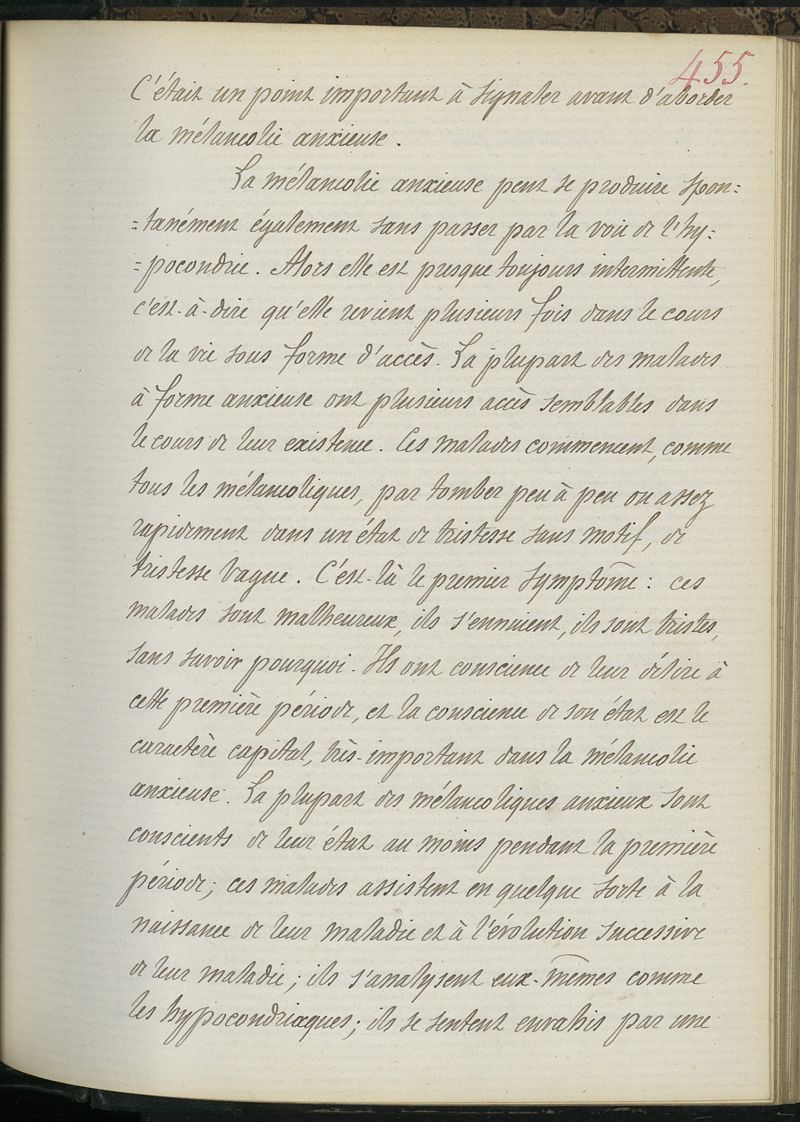 455.
C'était un point important à signaler avant d'aborder
la mélancolie anxieuse.
La mélancolie anxieuse peut se produire spon=
=tanément également sans passer par la voie de l'hy=
=pocondrie. Alors elle est presque toujours intermittente,
c'est-à-dire qu'elle revient plusieurs fois dans le cours
de la vie sous forme d'accès. La plupart des malades
à forme anxieuse ont plusieurs accès semblables dans
le cours de leur existence. Ces malades commencent, comme
tous les mélancoliques, par tomber peu à peu ou assez
rapidement dans un état de tristesse sans motif, de
tristesse vague. C'est-là le premier symptôme : ces
malades sont malheureux, ils s'ennuient, ils sont tristes,
sans savoir pourquoi. Ils ont conscience de leur délire à
cette première période, et la conscience de son état est le
caractère capital, très-important dans la mélancolie
anxieuse. La plupart des mélancoliques anxieux sont
conscients de leur état au moins pendant la première
période; ces malades assistent en quelque sorte à la
naissance de leur maladie et à l'évolution successive
de leur maladie; ils s'analysent eux-mêmes comme
les hypocondriaques; ils se sentent envahis par une